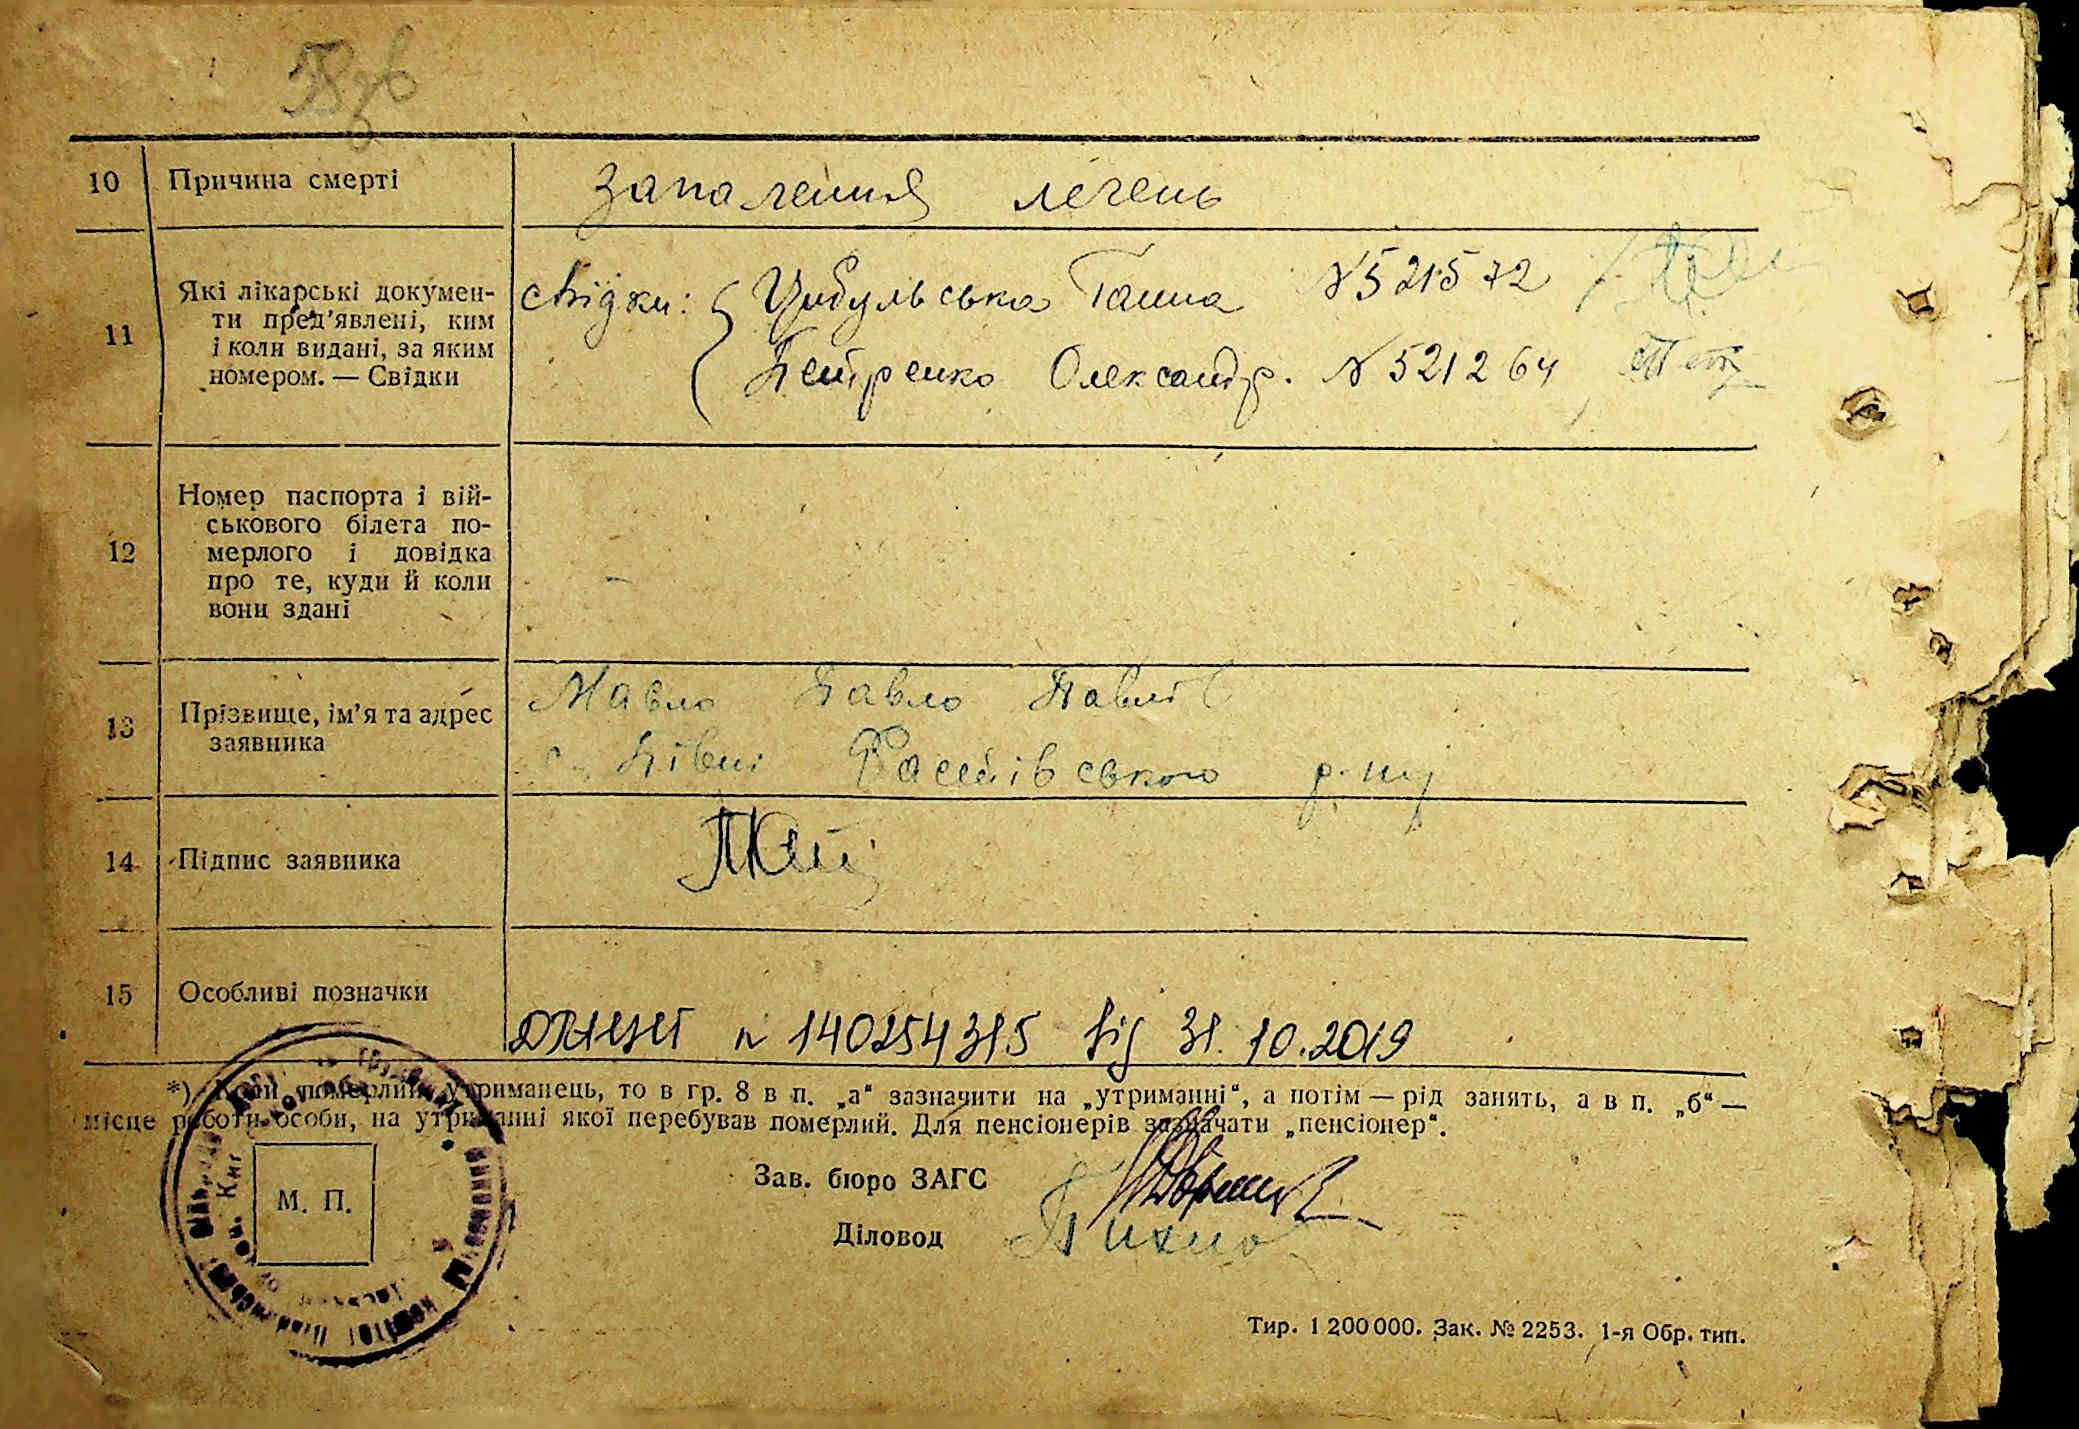 10 Причина смерті
запалення легень
11 Які лікарські докумен-
ти пред'явлені, ким
і коли видані, за яким
номером. — Свідки
свідки: Цибульська Ганна N 521572
Петренко Олександр. N 521264
12 Номер паспорта і вій-
ськового білета по-
мерлого і довідка
про те, куди й коли
вони здані
13 Прізвище, ім'я та адрес
заявника
Павло
с. Півні Фастівського р-ну
14 Підпис заявника
15 Особливі позначки
N 140254315 від 31.10.2019
*) Коли померлий утриманець, то в гр. 8 в п. „а“ зазначити на „утриманні“, а потім — рід занять, а в п. „б“ —
місце роботи особи, на утриманні якої перебував померлий. Для пенсіонерів зазначати „пенсіонер“.
Зав. бюро ЗАГС
М. П.
Діловод
Тир. 1 200 000. Зак. № 2253. 1-я Обр. тип.